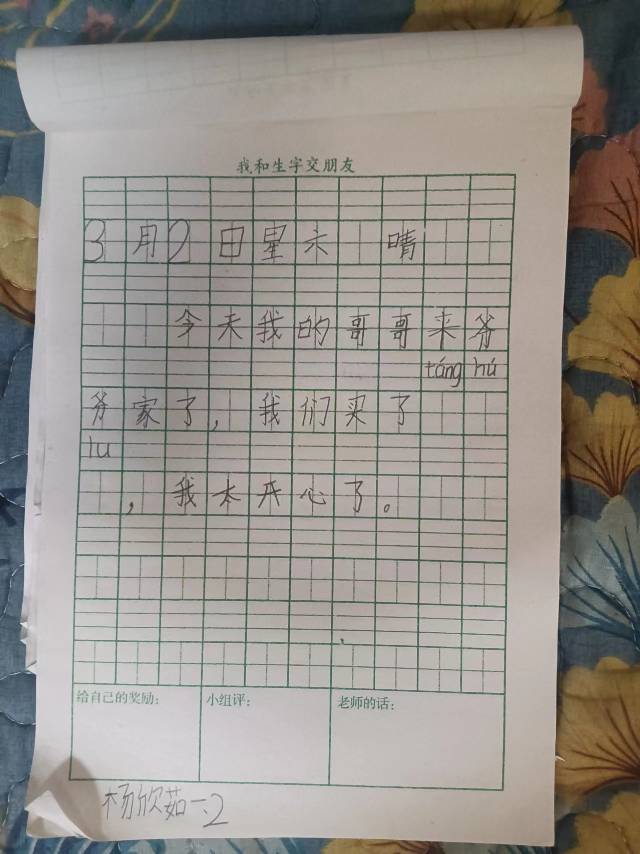 我和生字交朋友
3月2日星六 晴
今天我的哥哥来爷
táng hú
爷家了，我们买了
lu
，我太开心了。
给自己的奖励：
小组评：
老师的话：
杨欣茹一.2